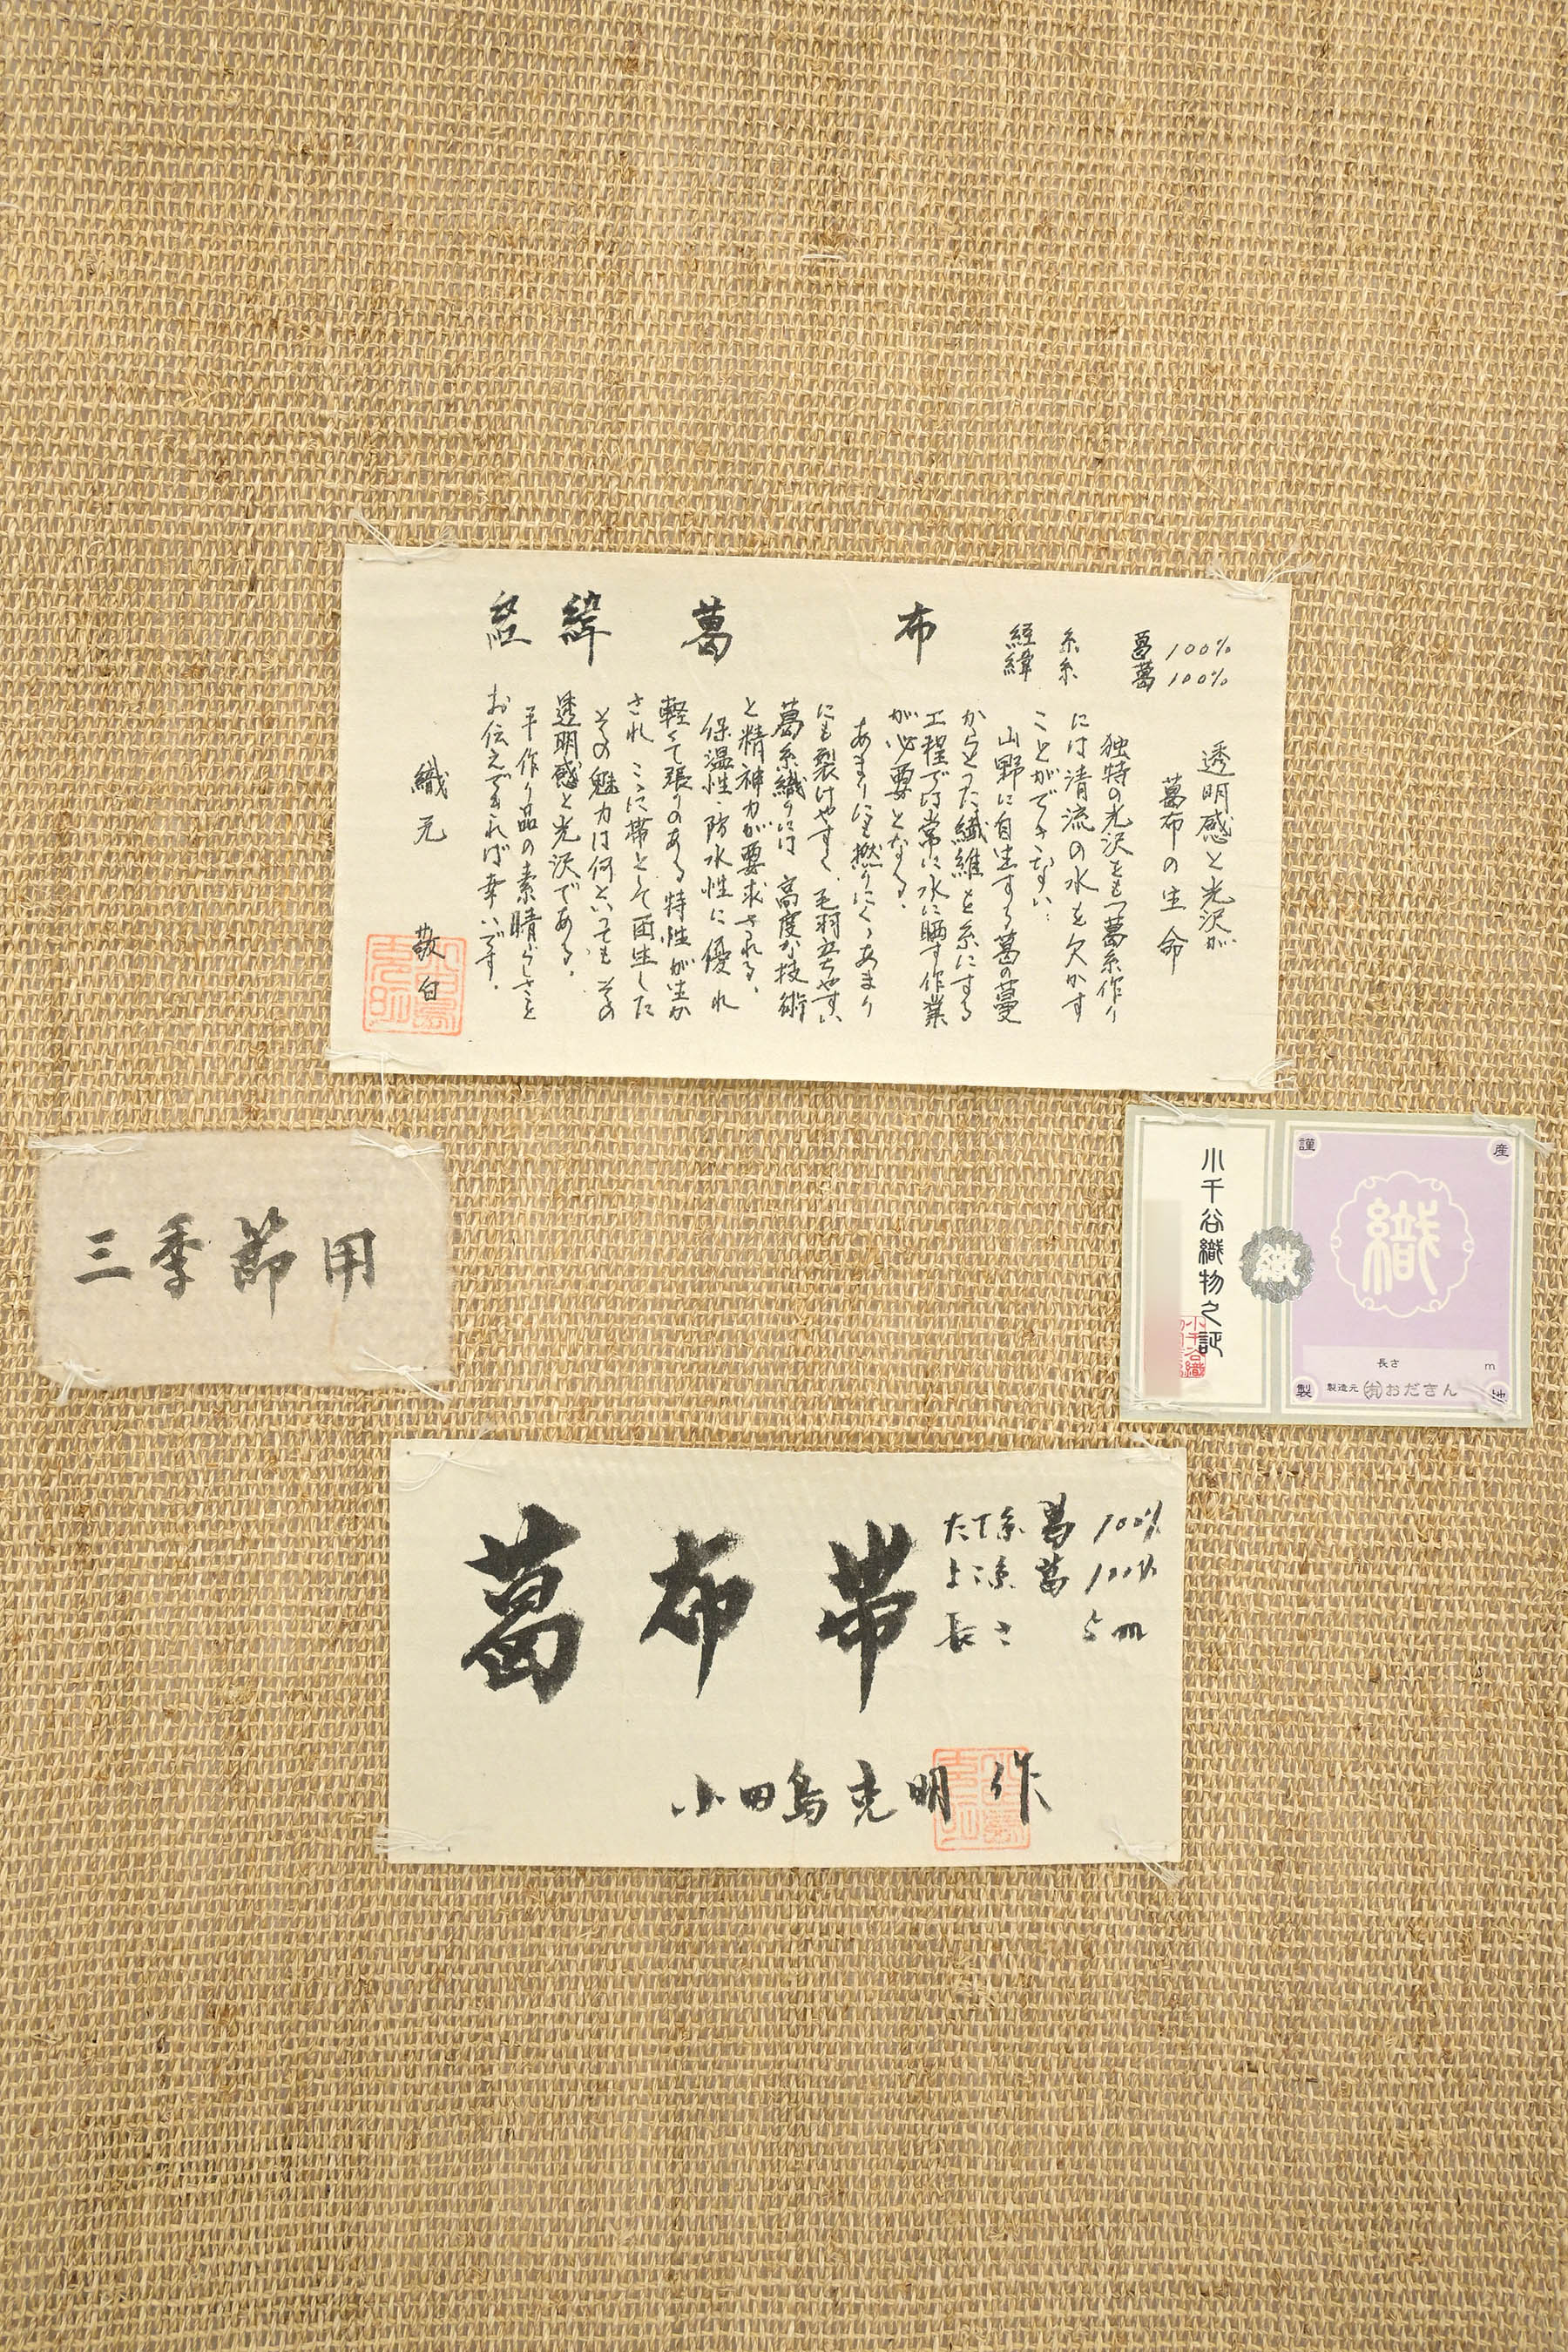 経緯葛布
経糸 葛 100%
緯糸 葛 100%
透明感と光沢が
葛布の生命
独特の光沢をもつ葛糸作り
には清流の水を欠かす
ことができない.
山野に自生する葛の蔓
からとった繊維を糸にする
工程では常に水に晒す作業
が必要となる.
あまりにも撚りにくくあまり
にも裂けやすく、毛羽立ちやすい
葛糸織りには 高度な技術
と精神力が要求される.
保温性・防水性に優れ
軽くて張りのある特性が生か
され こゝに帯として再生した
その魅力は何といっても その
透明感と光沢である.
手作り品の素晴らしさを
お伝えできれば幸いです.
織元 敬白
三季節用
小千谷織物之証
小千谷織
織
謹
産
織
長さ m
製造元 ㈲おださん
製
地
葛布帯
たて糸 葛 100%
よこ糸 葛 100%
長さ 5m
小田島克明 作